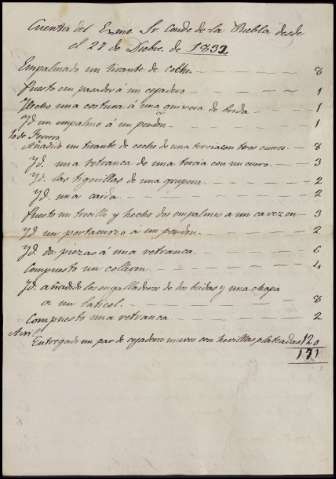 Cuenta del Exmo Sr Conde de la Puebla desde
el 27 de Dicbre. de 1832
Empalmado un tirante de coche 8
Puesto un pasador á un cejadero 1
Hecho una costura á una quixera de brida 1
Yd un empalmo á un pendon 1
Añadido un tirante de coche de una tercia con tres cueros 8
Yd una retranca de una tercia con un cuero 3
Yd las tigerillas de una grupera 2
Yd una caida 2
Puesto un trocillo y hechos dos empalmes a un cavezon 3
Yd un portamozo á un pendon 2
Yd dos piezas á una retranca 6
Compuesto un colleron 4
Yd añadido los engalladores de las bridas y una chapa
a un latical 8
Compuesto una retranca 2
Entregado un par de cejaderos nuevos con hevillas plateadas 120
171